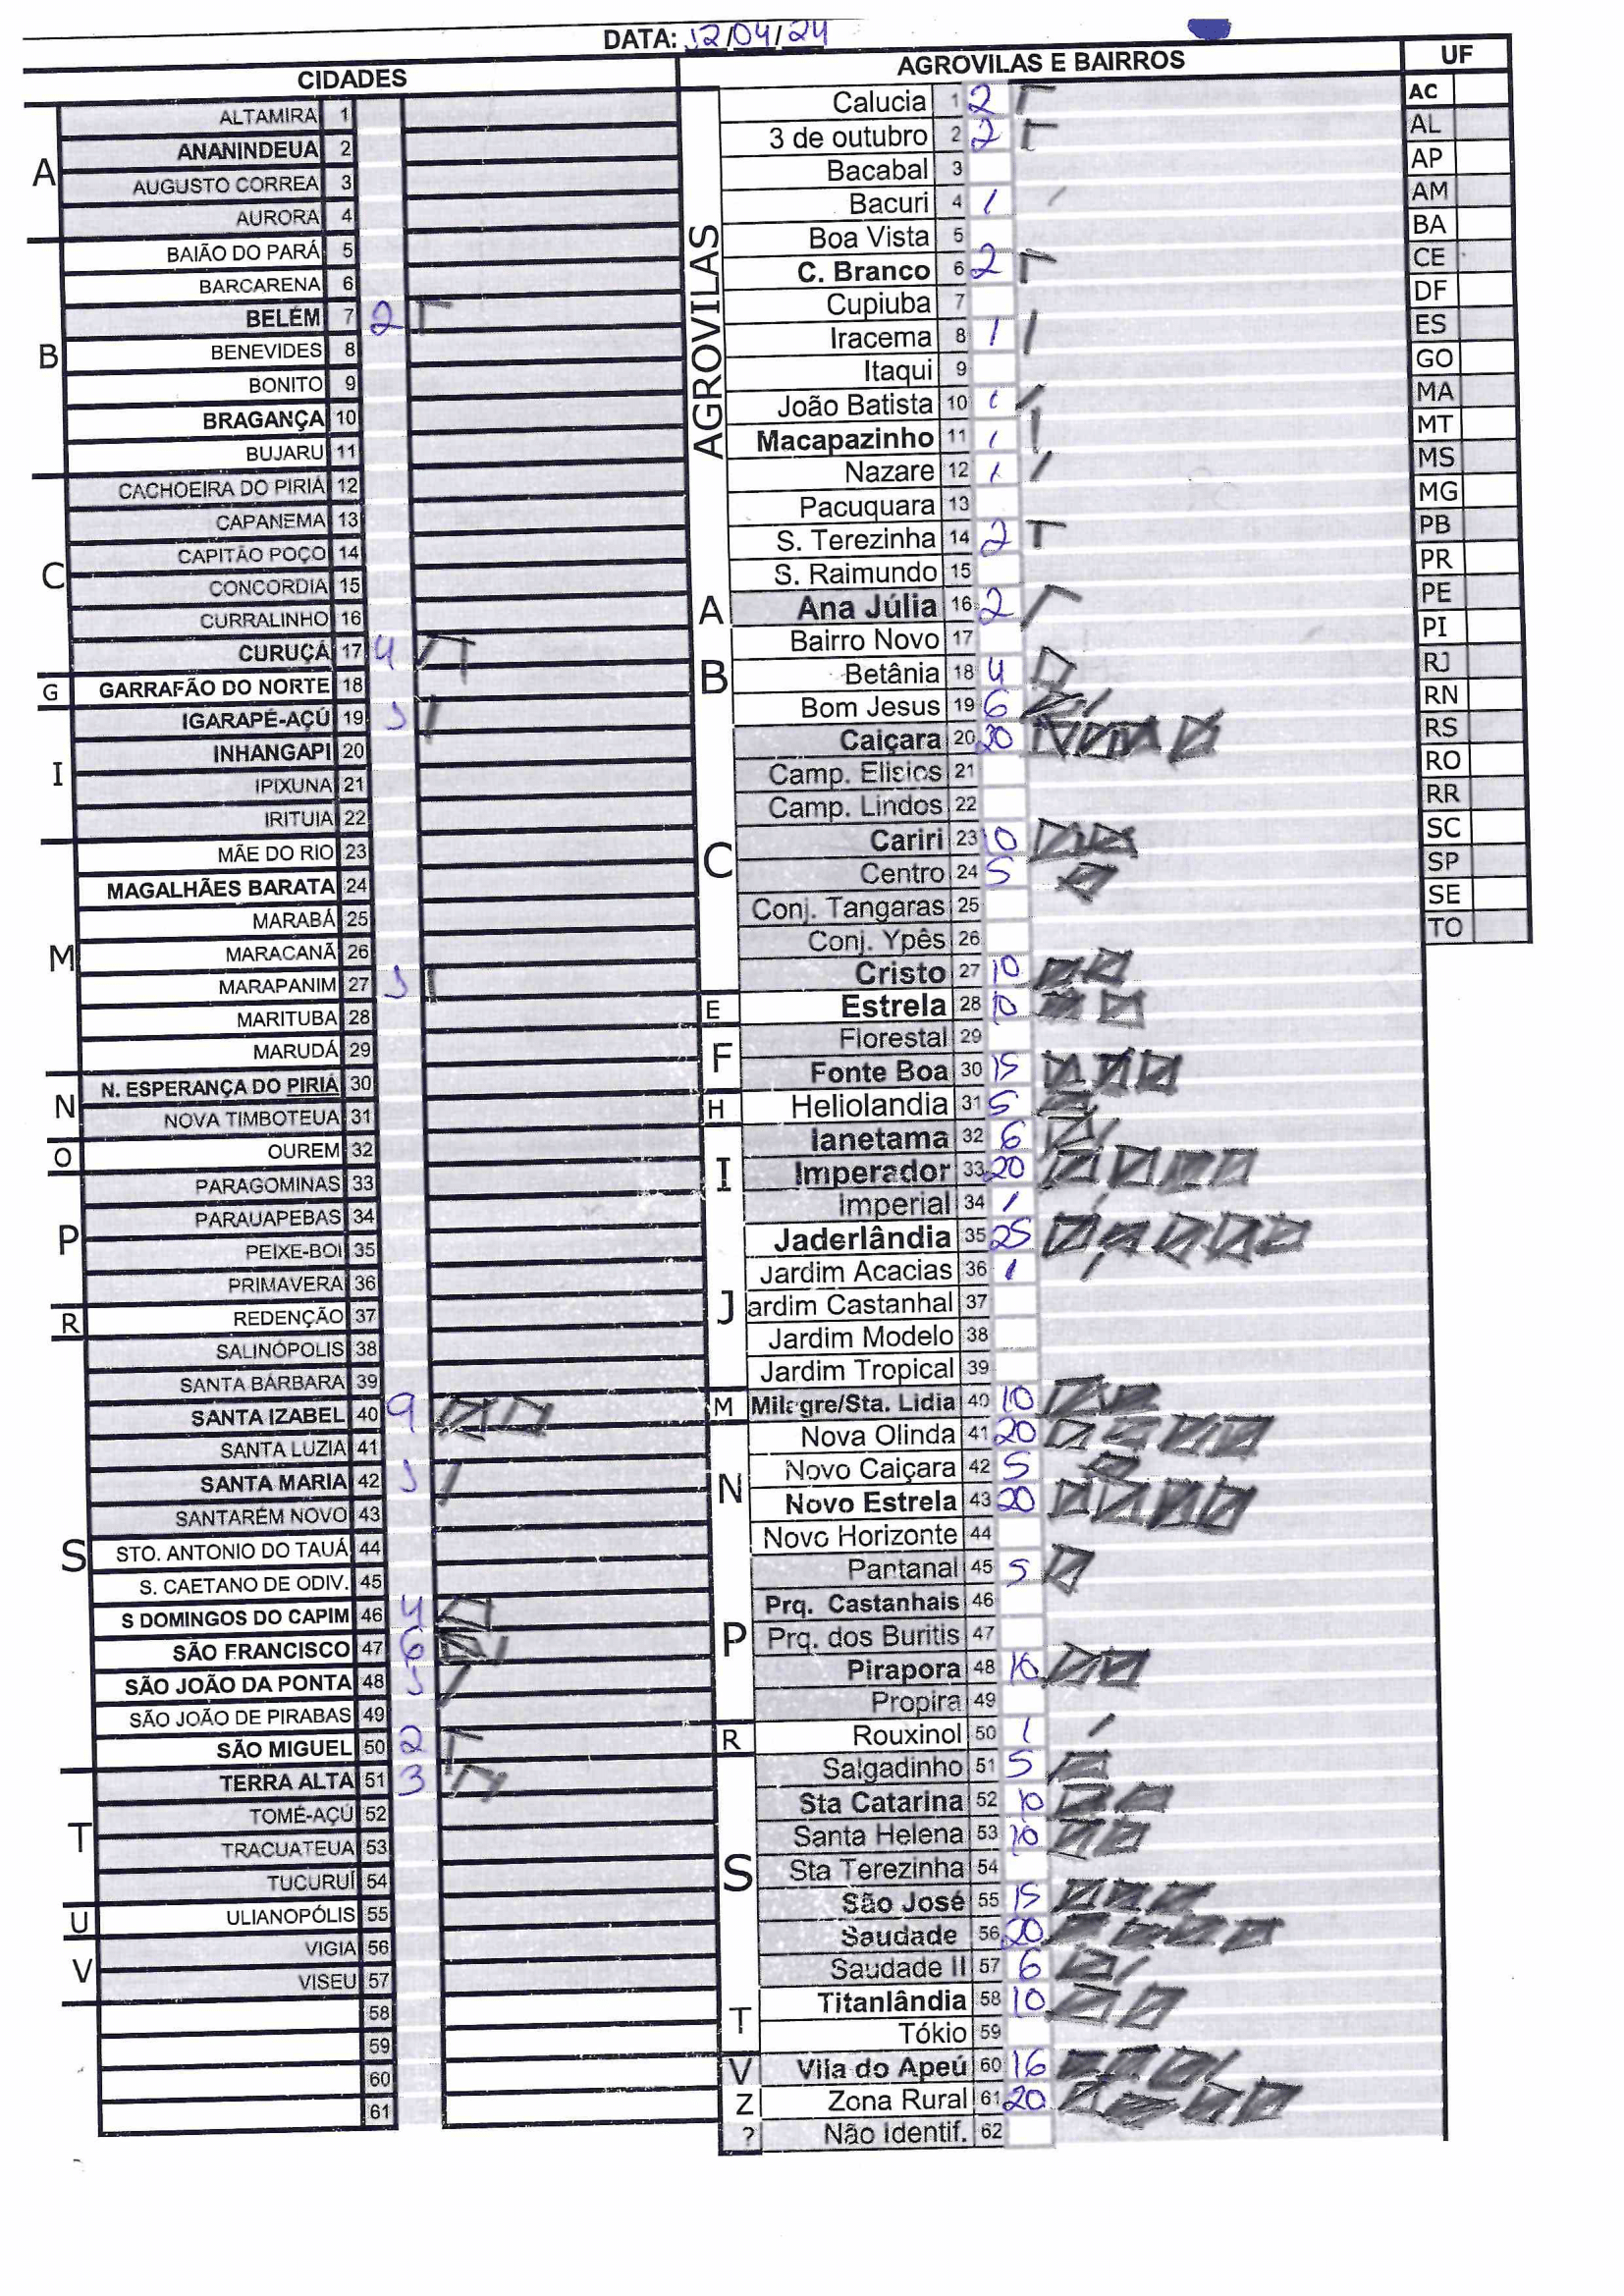 DATA: 12/04/24
CIDADES
A
ALTAMIRA 1
ANANINDEUA 2
AUGUSTO CORREA 3
AURORA 4
B
BAIÃO DO PARÁ 5
BARCARENA 6
BELÉM 7 2
BENEVIDES 8
BONITO 9
BRAGANÇA 10
BUJARU 11
C
CACHOEIRA DO PIRIÁ 12
CAPANEMA 13
CAPITÃO POÇO 14
CONCORDIA 15
CURRALINHO 16
CURUÇÁ 17 4
G
GARRAFÃO DO NORTE 18
I
IGARAPÉ-AÇÚ 19 1
INHANGAPI 20
IPIXUNA 21
IRITUIA 22
M
MÃE DO RIO 23
MAGALHÃES BARATA 24
MARABÁ 25
MARACANÃ 26
MARAPANIM 27 1
MARITUBA 28
MARUDÁ 29
N
N. ESPERANÇA DO PIRIÁ 30
NOVA TIMBOTEUA 31
O
OUREM 32
P
PARAGOMINAS 33
PARAUAPEBAS 34
PEIXE-BOI 35
PRIMAVERA 36
R
REDENÇÃO 37
S
SALINÓPOLIS 38
SANTA BÁRBARA 39
SANTA IZABEL 40 9
SANTA LUZIA 41
SANTA MARIA 42 1
SANTARÉM NOVO 43
STO. ANTONIO DO TAUÁ 44
S. CAETANO DE ODIV. 45
S DOMINGOS DO CAPIM 46 4
SÃO FRANCISCO 47 6
SÃO JOÃO DA PONTA 48 1
SÃO JOÃO DE PIRABAS 49
SÃO MIGUEL 50 2
T
TERRA ALTA 51 3
TOMÉ-AÇÚ 52
TRACUATEUA 53
TUCURUÍ 54
U
ULIANOPÓLIS 55
V
VIGIA 56
VISEU 57
58
59
60
61
AGROVILAS E BAIRROS
AGROVILAS
Calucia 1 2
3 de outubro 2 2
Bacabal 3
Bacuri 4 1
Boa Vista 5
C. Branco 6 2
Cupiuba 7
Iracema 8 1
Itaqui 9
João Batista 10 1
Macapazinho 11 1
Nazare 12 1
Pacuquara 13
S. Terezinha 14 2
S. Raimundo 15
A
Ana Júlia 16 2
B
Bairro Novo 17
Betânia 18 4
Bom Jesus 19 6
C
Caiçara 20 20
Camp. Elisios 21
Camp. Lindos 22
Cariri 23 10
Centro 24 5
Conj. Tangaras 25
Conj. Ypês 26
Cristo 27 10
E
Estrela 28 10
F
Florestal 29
Fonte Boa 30 15
H
Heliolandia 31 5
I
Ianetama 32 6
Imperador 33 20
imperial 34 1
J
Jaderlândia 35 25
Jardim Acacias 36 1
ardim Castanhal 37
Jardim Modelo 38
Jardim Tropical 39
M
Milagre/Sta. Lidia 40 10
N
Nova Olinda 41 20
Novo Caiçara 42 5
Novo Estrela 43 20
Novo Horizonte 44
P
Pantanal 45 5
Prq. Castanhais 46
Prq. dos Buritis 47
Pirapora 48 10
Propira 49
R
Rouxinol 50 1
S
Salgadinho 51 5
Sta Catarina 52 10
Santa Helena 53 10
Sta Terezinha 54
São José 55 15
Saudade 56 20
Saudade II 57 6
T
Titanlândia 58 10
Tókio 59
V
Vila do Apeú 60 16
Z
Zona Rural 61 20
?
Não Identif. 62
UF
AC
AL
AP
AM
BA
CE
DF
ES
GO
MA
MT
MS
MG
PB
PR
PE
PI
RJ
RN
RS
RO
RR
SC
SP
SE
TO